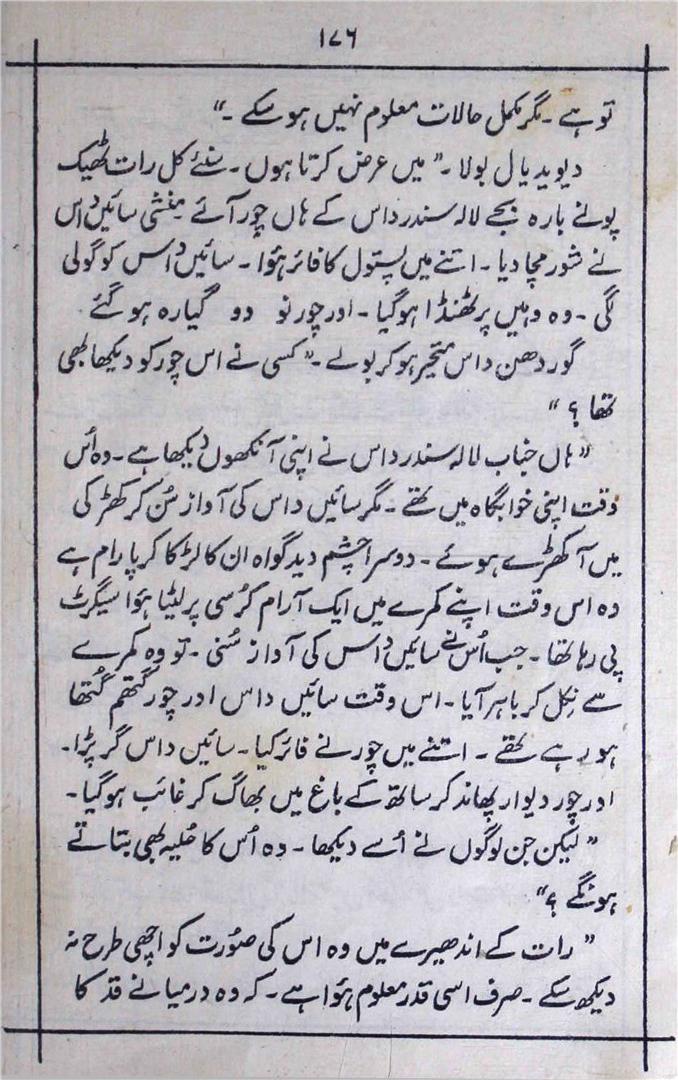 ۱۷۶
تو ہے ۔ مگر مکمل حالات معلوم نہیں ہو سکے ۔"
دیوید یال بولا ۔" میں عرض کرتا ہوں ۔ سنئے کل رات ٹھیک
پونے بارہ بجے لالہ سندر داس کے ہاں چور آئے ۔ منشی سائیں داس
نے شور مچا دیا ۔ اتنے میں پستول کا فائر ہؤا ۔ سائیں داس کو گولی
لگی ۔ وہ وہیں پر ٹھنڈا ہوگیا ۔ اور چور نو دو گیارہ ہو گئے ۔
گوردھن داس متحیر ہو کر بولے ۔" کسی نے اس چور کو دیکھا بھی
تھا ؟ "
" ہاں جناب لالہ سندر داس نے اپنی آنکھوں دیکھا ہے ۔ وہ اُس
وقت اپنی خوابگاہ میں تھے ۔ مگر سائیں داس کی آواز سُن کر کھڑکی
میں آ کھڑے ہوئے ۔ دوسرا چشم دید گواہ ان کا لڑکا کرپا رام ہے
وہ اس وقت اپنے کمرے میں ایک آرام کرُسی پر لیٹا ہؤا سیگرٹ
پی رہا تھا ۔ جب اُس نے سائیں داس کی آواز سُنی ۔ تو وہ کمرے
سے نِکل کر باہر آیا ۔ اس وقت سائیں داس اور چور گتھم گُتھا
ہو رہے تھے ۔ اتنے میں چور نے فائر کیا ۔ سائیں داس گر پڑا ۔
اور چور دیوار پھاند کر ساتھ کے باغ میں بھاگ کر غائب ہوگیا ۔
" لیکن جن لوگوں نے اُسے دیکھا ۔ وہ اُس کا حُلیہ بھی بتاتے
ہونگے ؟"
" رات کے اندھیرے میں وہ اس کی صوُرت کو اچھی طرح نہ
دیکھ سکے ۔ صرف اسی قدر معلوم ہؤا ہے ۔ کہ وہ درمیانے قد کا